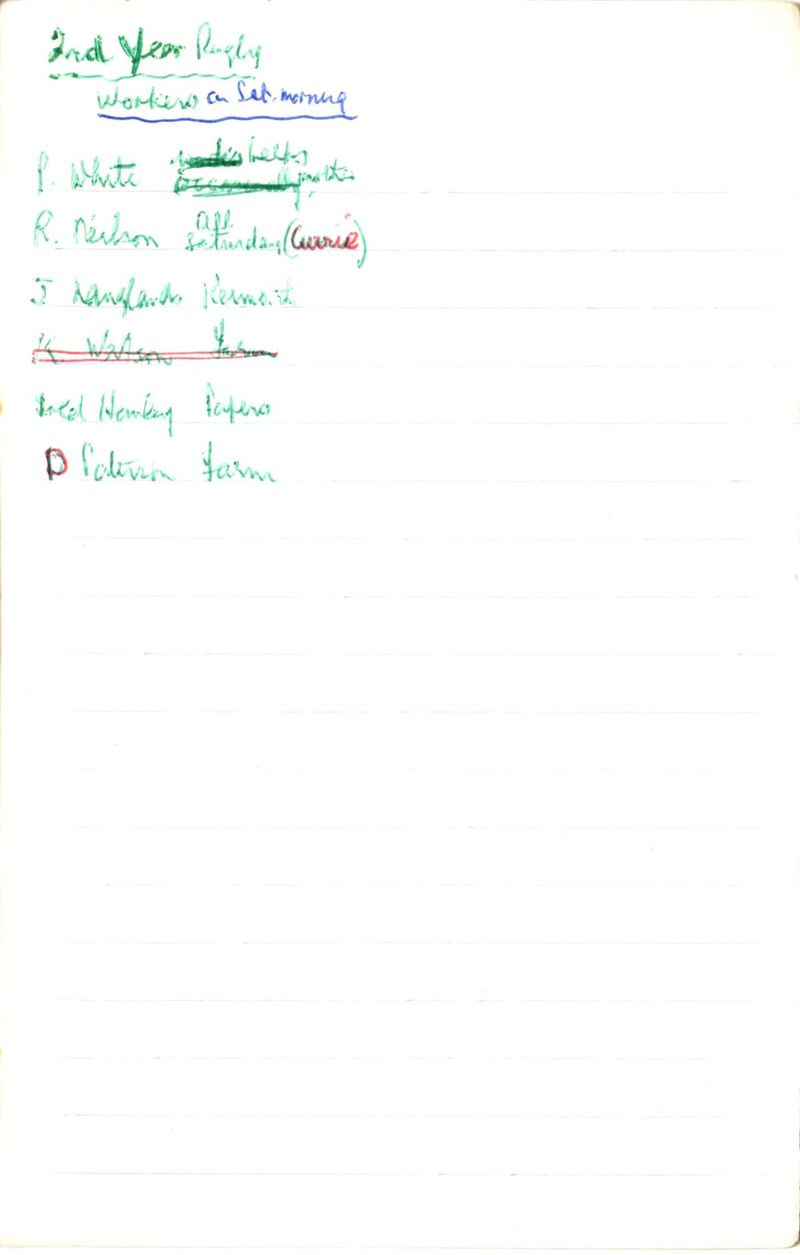 2nd Year Rugby
Workers on Sat. morning
P. White helps mother
R. Neilson all saturday (Currie)
J Langlands
K. Watson Farm
Fred Papers
D Paterson Farm